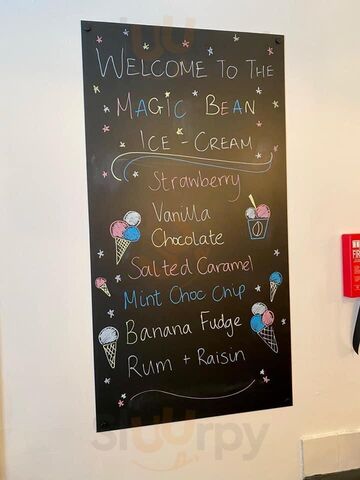 WELCOME TO THE
MAGIC BEAN
ICE - CREAM
Strawberry
Vanilla
Chocolate
Salted Caramel
Mint Choc Chip
Banana Fudge
Rum + Raisin
sluurpy